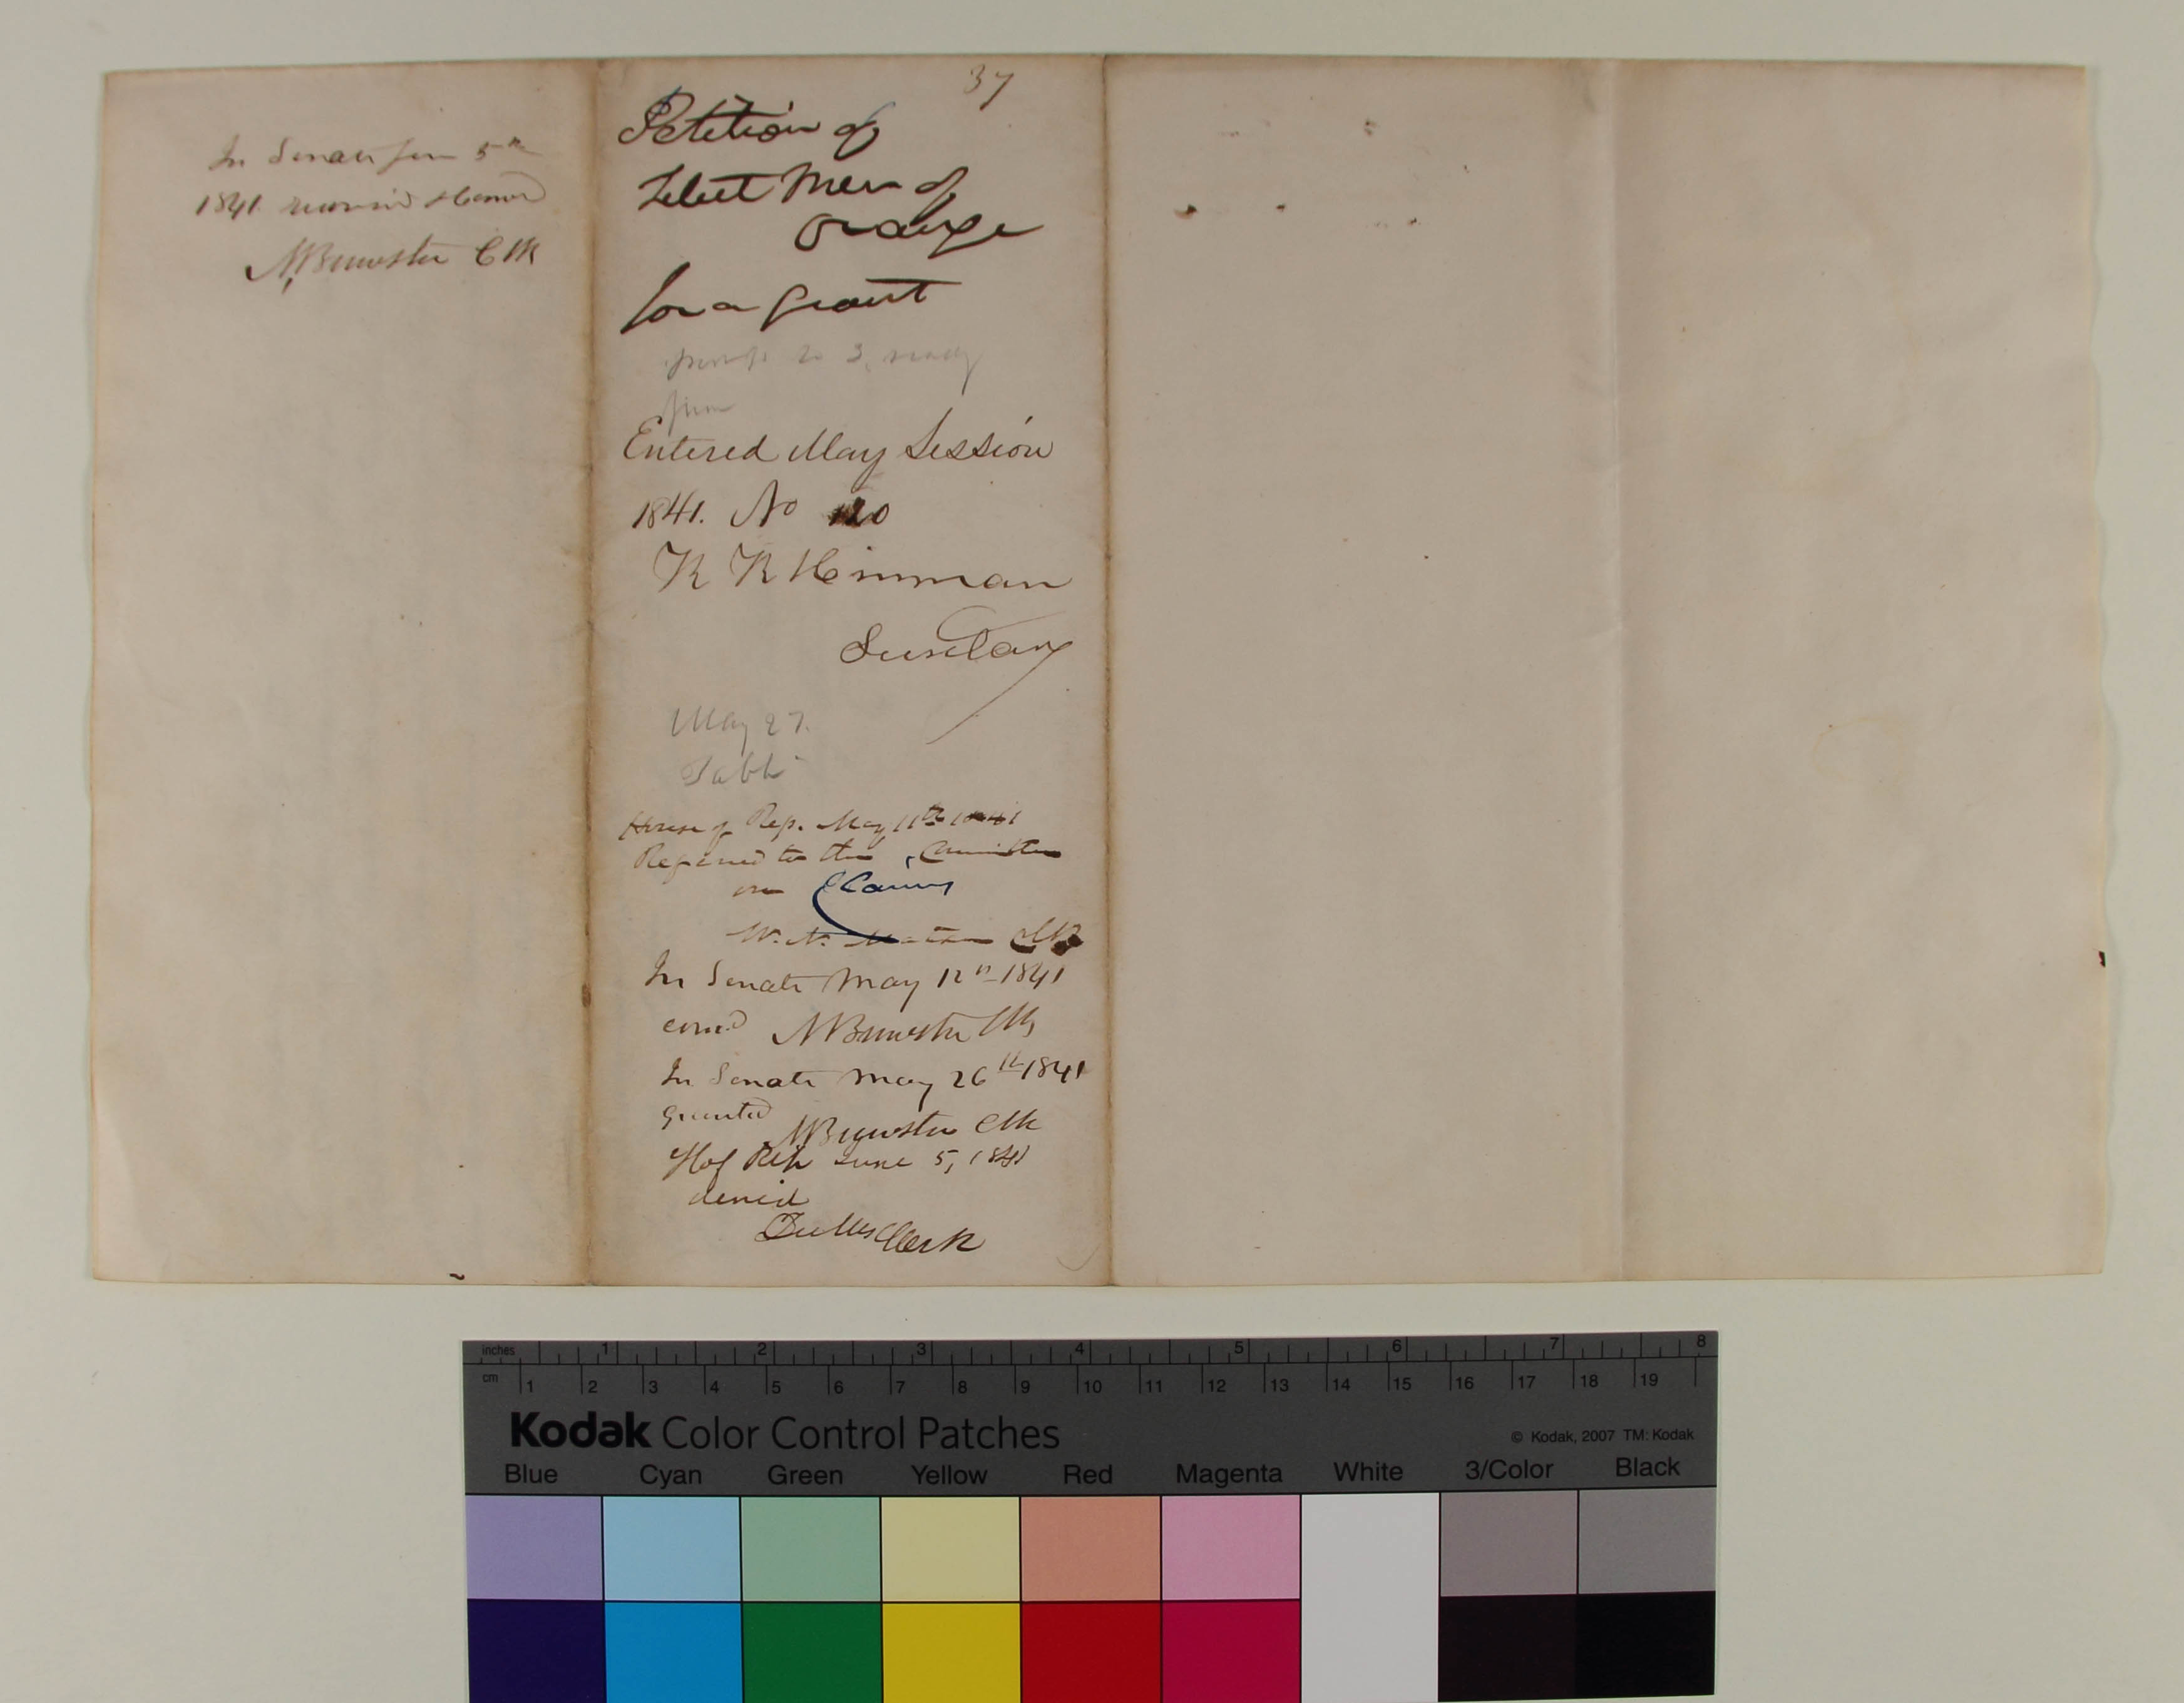 In Senate June 5th
1841. reversed & denied
N Brewster Clk
37
Petition of
Select Men of
Orange
for a Grant
Entered May Session
1841. No 120
R R Hinman
Secretary
May 27.
Table
House of Rep. May 11th 1841
Referred to the Committee
on Claims
W. N. Matson Clk
In Senate May 12th 1841
con'd N Brewster Clk
In Senate May 26th 1841
granted
N Brewster Clk
H of Rep June 5, 1841
denied
Clerk
inches 1 2 3 4 5 6 7 8
cm 1 2 3 4 5 6 7 8 9 10 11 12 13 14 15 16 17 18 19
Kodak Color Control Patches
© Kodak, 2007 TM: Kodak
Blue Cyan Green Yellow Red Magenta White 3/Color Black